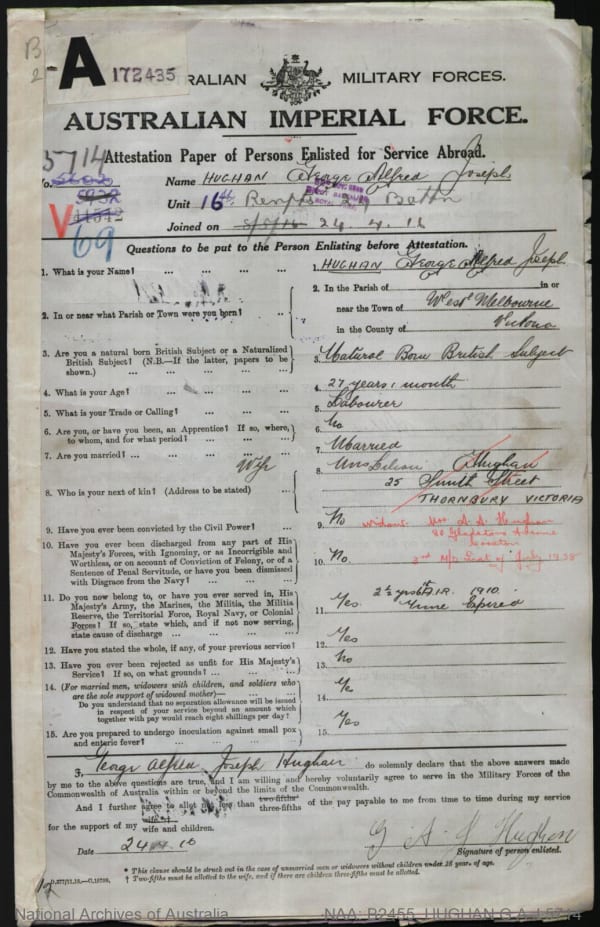 B
2
A 172435
AUSTRALIAN MILITARY FORCES.
AUSTRALIAN IMPERIAL FORCE.
5714 Attestation Paper of Persons Enlisted for Service Abroad.
No.
5932
41542
V
69
Name HUGHAN George Alfred Joseph
Unit 16th Battn
Joined on 8/5/16 24.4.16
Questions to be put to the Person Enlisting before Attestation.
1. What is your Name? ... 1. HUGHAN George Alfred Joseph
2. In or near what Parish or Town were you born? ... 2. In the Parish of in or
near the Town of West Melbourne
in the County of Victoria
3. Are you a natural born British Subject or a Naturalized British Subject? (N.B.—If the latter, papers to be shown.) 3. Natural Born British Subject
4. What is your Age? ... 4. 27 years 1 month
5. What is your Trade or Calling? ... 5. Labourer
6. Are you, or have you been, an Apprentice? If so, where, to whom, and for what period? ... 6. No
7. Are you married? ... 7. Married
Wife
8. Who is your next of kin? (Address to be stated) ... 8. Mrs Lilian Hughan
25 Smith Street
THORNBURY VICTORIA
9. Have you ever been convicted by the Civil Power? ... 9. No
widow:
10. Have you ever been discharged from any part of His Majesty's Forces, with Ignominy, or as Incorrigible and Worthless, or on account of Conviction of Felony, or of a Sentence of Penal Servitude, or have you been dismissed with Disgrace from the Navy? ... 10. No.
July 1938
11. Do you now belong to, or have you ever served in, His Majesty's Army, the Marines, the Militia, the Militia Reserve, the Territorial Force, Royal Navy, or Colonial Forces? If so, state which, and if not now serving, state cause of discharge ... 11. Yes 2½ yrs A.I.R. 1910.
Time Expired
12. Have you stated the whole, if any, of your previous service? 12. Yes
13. Have you ever been rejected as unfit for His Majesty's Service? If so, on what grounds? ... 13. No
14. (For married men, widowers with children, and soldiers who are the sole support of widowed mother)—
Do you understand that no separation allowance will be issued in respect of your service beyond an amount which together with pay would reach eight shillings per day? 14. Yes
15. Are you prepared to undergo inoculation against small pox and enteric fever? ... 15. Yes
I, George Alfred Joseph Hughan do solemnly declare that the above answers made
by me to the above questions are true, and I am willing and hereby voluntarily agree to serve in the Military Forces of the
Commonwealth of Australia within or beyond the limits of the Commonwealth.
And I further agree to allot not less than two-fifths three-fifths of the pay payable to me from time to time during my service
for the support of my wife and children.
Date 24.4.16 G A J Hughan
Signature of person enlisted.
* This clause should be struck out in the case of unmarried men or widowers without children under 18 year. of age.
† Two-fifths must be allotted to the wife, and if there are children three-fifths must be allotted.
National Archives of Australia NAA: B2455, HUGHAN G A J 5714